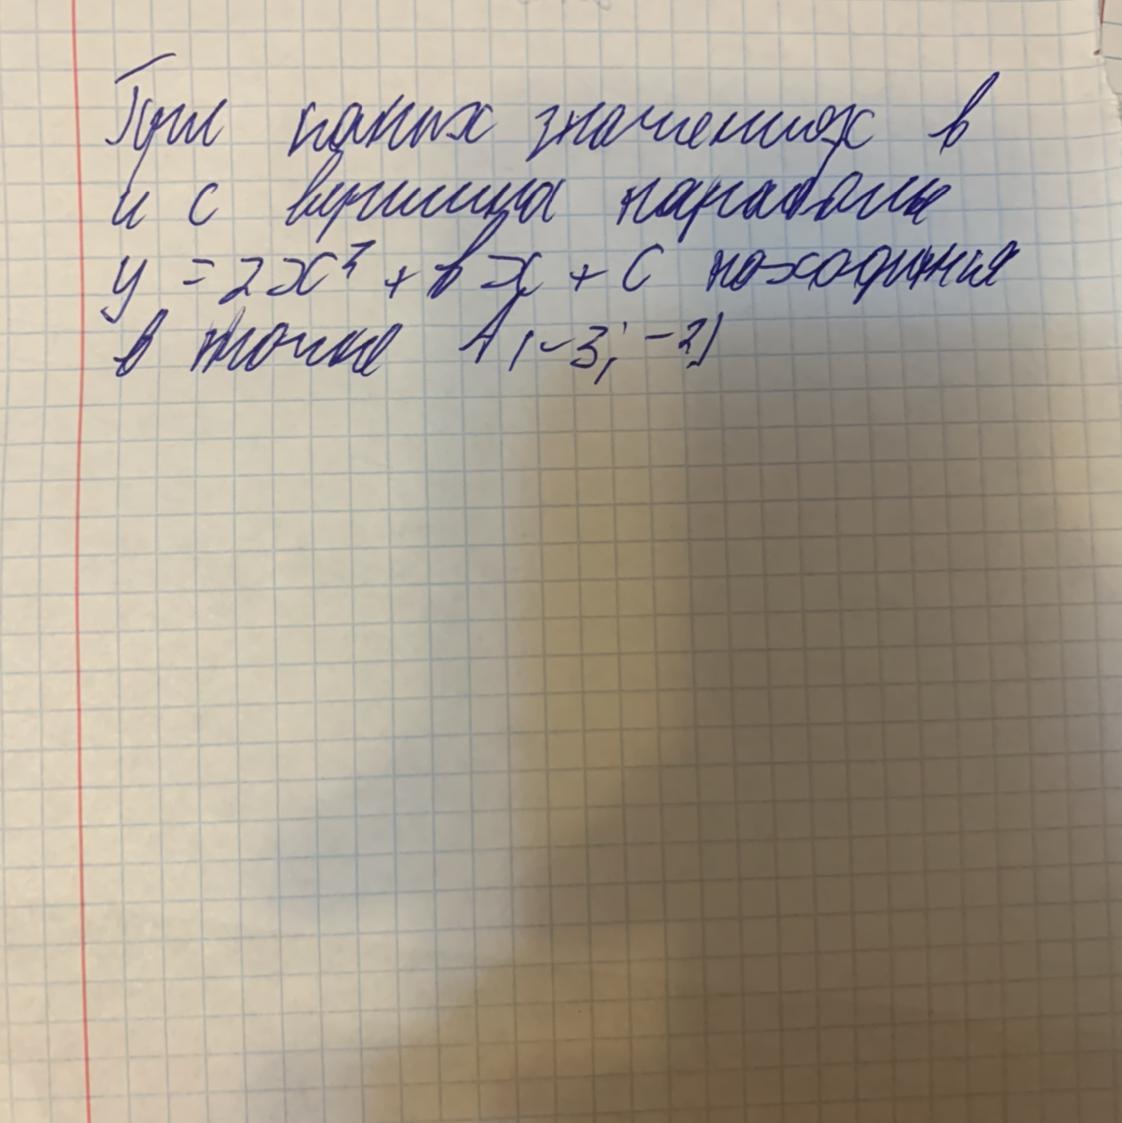 При каких значениях b
и c вершина параболы
y = 2x² + bx + c находится
в точке A(-3; -2)